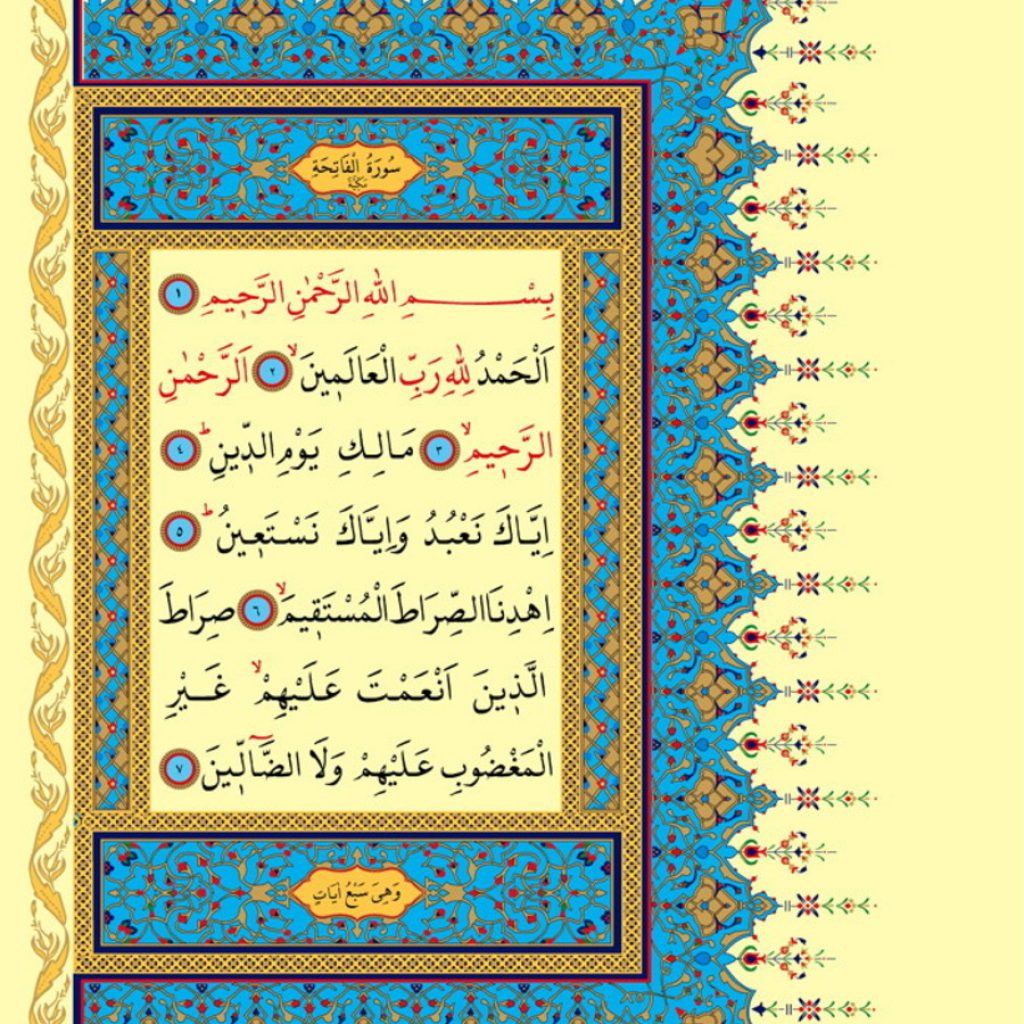 سُورَةُ الْفَاتِحَةِ
مَكِّيَّةٌ
بِسْمِ اللّٰهِ الرَّحْمٰنِ الرَّح۪يمِ ١
اَلْحَمْدُ لِلّٰهِ رَبِّ الْعَالَم۪ينَۙ ٢ اَلرَّحْمٰنِ
الرَّح۪يمِۙ ٣ مَالِكِ يَوْمِ الدّ۪ينِۜ ٤
اِيَّاكَ نَعْبُدُ وَاِيَّاكَ نَسْتَع۪ينُۜ ٥
اِهْدِنَا الصِّرَاطَ الْمُسْتَق۪يمَۙ ٦ صِرَاطَ
الَّذ۪ينَ اَنْعَمْتَ عَلَيْهِمْۙ غَيْرِ
الْمَغْضُوبِ عَلَيْهِمْ وَلَا الضَّٓالّ۪ينَ ٧
وَهِيَ سَبْعُ اٰيَاتٍ